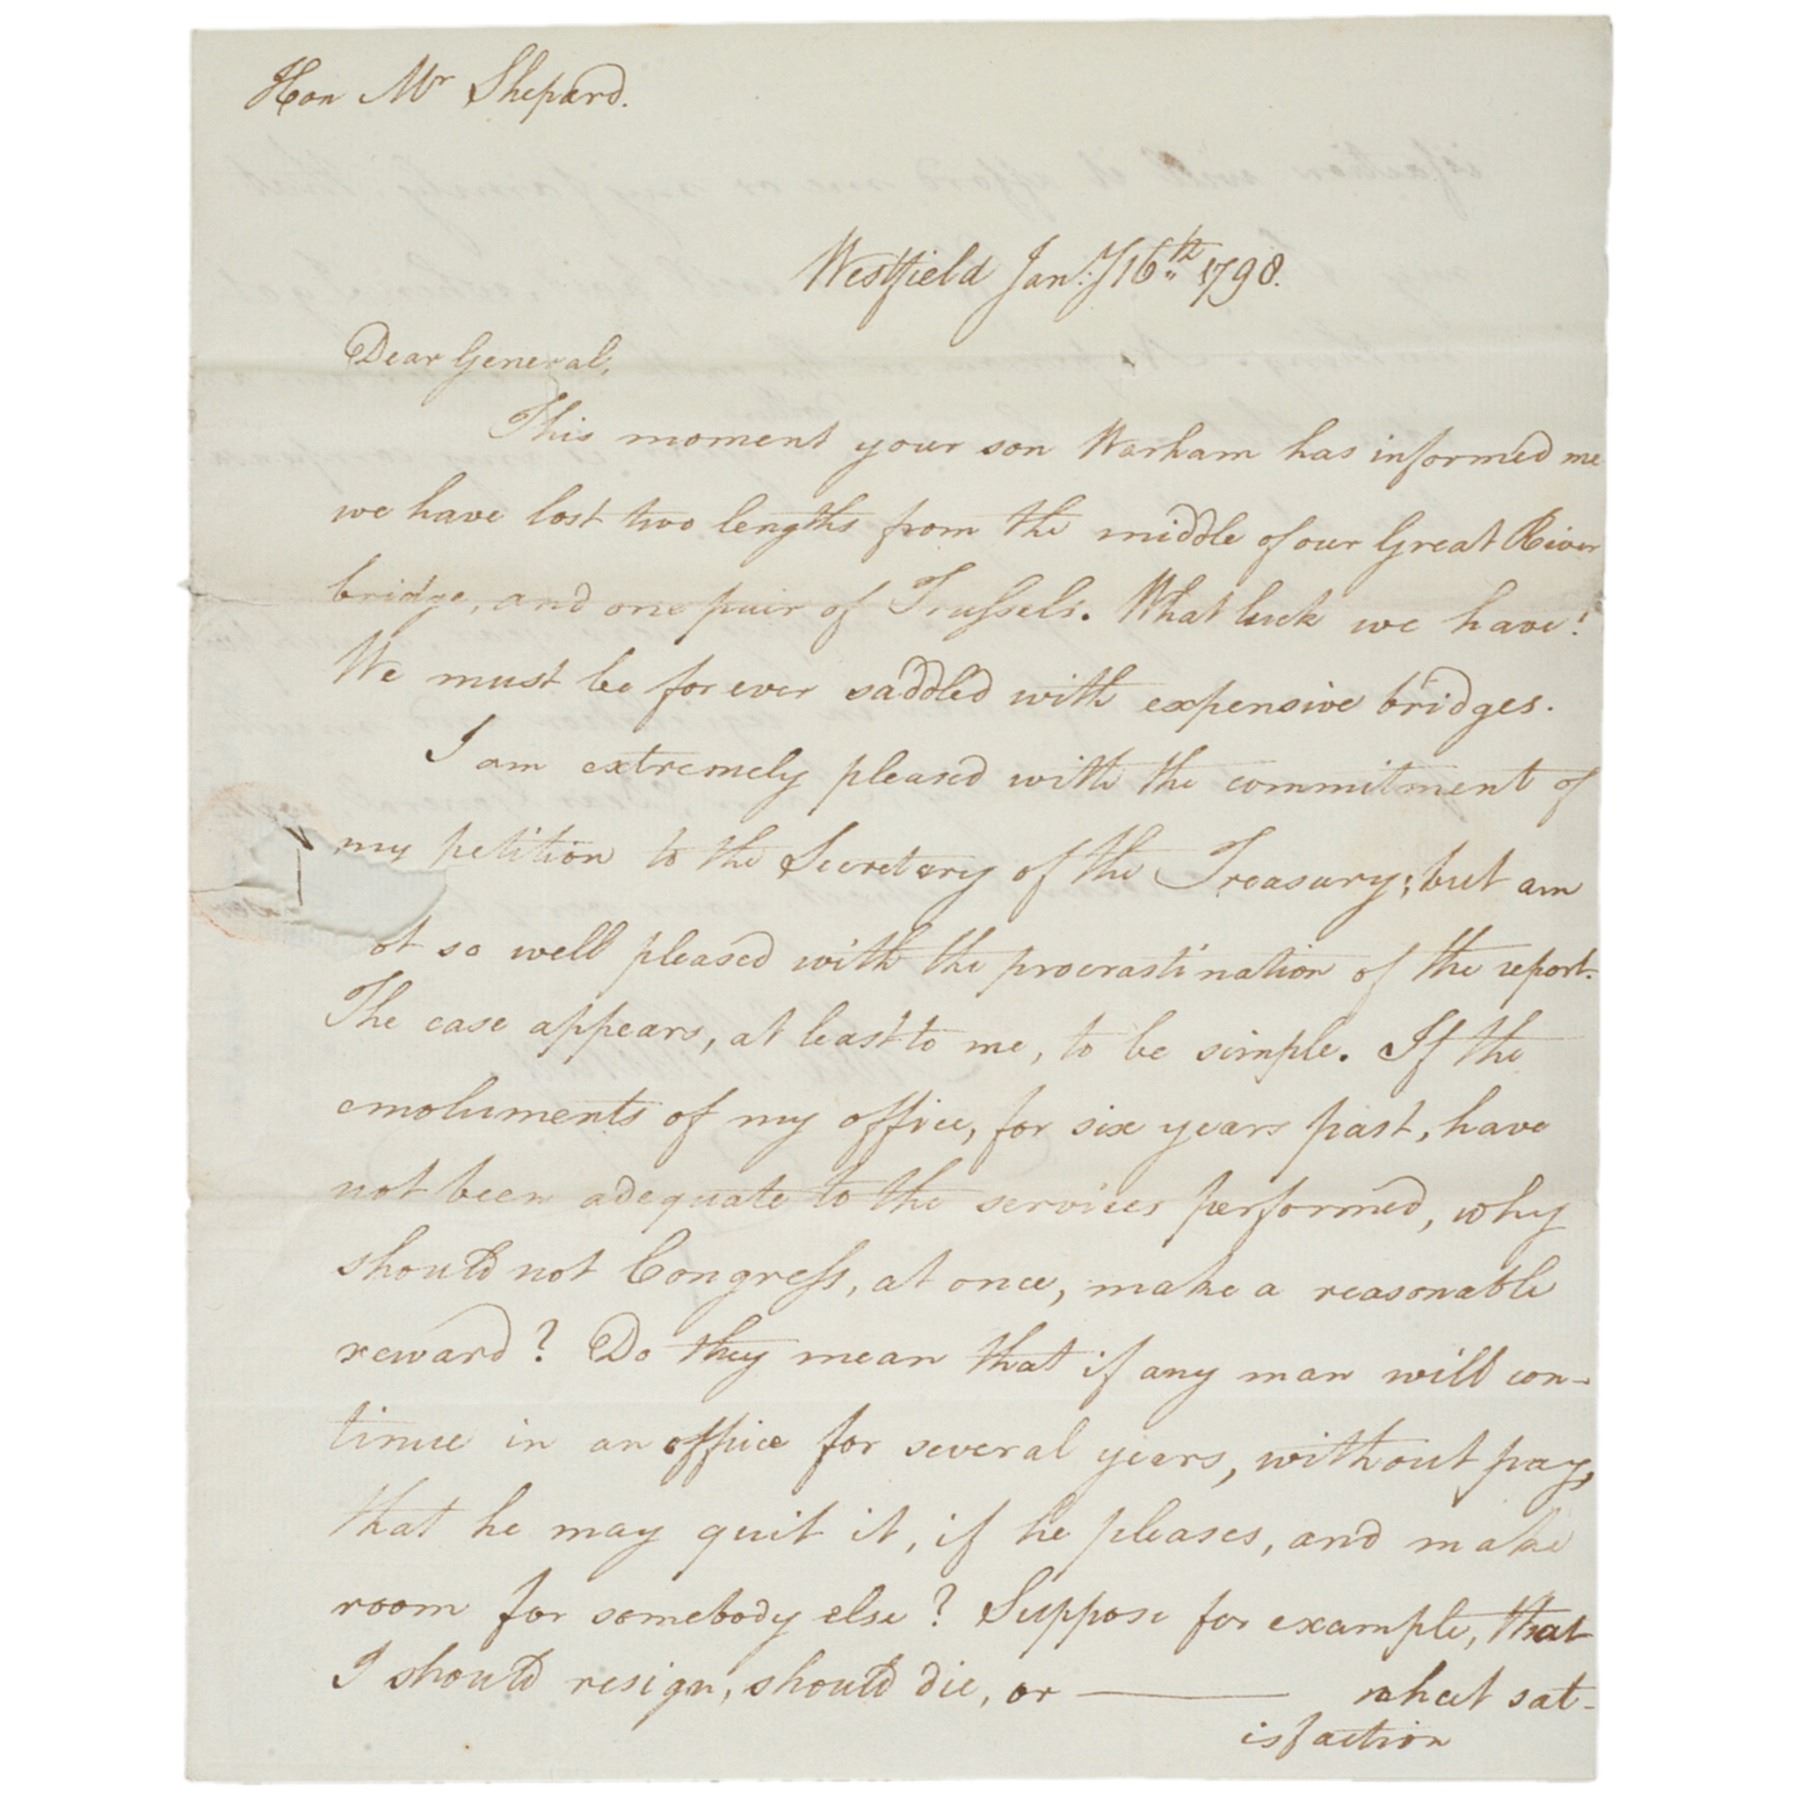 Hon Mr Shepard.
Westfield Jan:y 16th 1798.
Dear General,
This moment your son Warham has informed me
we have lost two lengths from the middle of our Great River
bridge, and one pair of Trussels. What luck we have!
We must be for ever saddled with expensive bridges.
I am extremely pleased with the commitment of
my petition to the Secretary of the Treasury; but am
ot so well pleased with the procrastination of the report.
The case appears, at least to me, to be simple. If the
emoluments of my office, for six years past, have
not been adequate to the services performed, why
should not Congress, at once, make a reasonable
reward? Do they mean that if any man will con-
tinue in an office for several years, without pay,
that he may quit it, if he pleases, and make
room for somebody else? Suppose for example, that
I should resign, should die, or ——— what sat-
isfaction